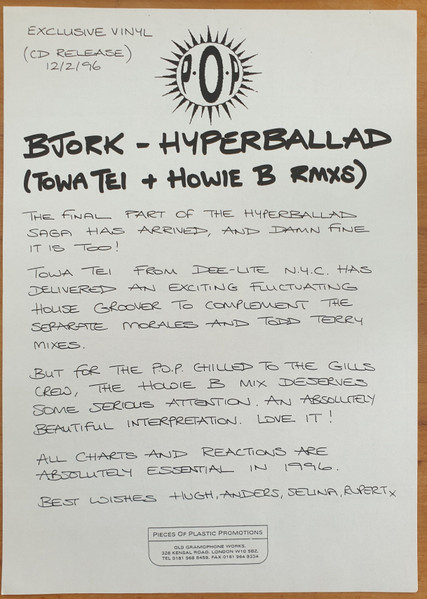 EXCLUSIVE VINYL
(CD RELEASE)
12/2/96
P.O.P
BJORK - HYPERBALLAD
(TOWA TEI + HOWIE B RMXS)
THE FINAL PART OF THE HYPERBALLAD
SAGA HAS ARRIVED, AND DAMN FINE
IT IS TOO!
TOWA TEI FROM DEE-LITE N.Y.C. HAS
DELIVERED AN EXCITING FLUCTUATING
HOUSE GROOVER TO COMPLEMENT THE
SEPARATE MORALES AND TODD TERRY
MIXES.
BUT FOR THE P.O.P. CHILLED TO THE GILLS
CREW, THE HOWIE B MIX DESERVES
SOME SERIOUS ATTENTION. AN ABSOLUTELY
BEAUTIFUL INTERPRETATION. LOVE IT!
ALL CHARTS AND REACTIONS ARE
ABSOLUTELY ESSENTIAL IN 1996.
BEST WISHES HUGH, ANDERS, SELINA, RUPERT x
PIECES OF PLASTIC PROMOTIONS
OLD GRAMOPHONE WORKS,
326 KENSAL ROAD, LONDON W10 5BZ.
TEL 0181 968 8459. FAX 0181 964 9234